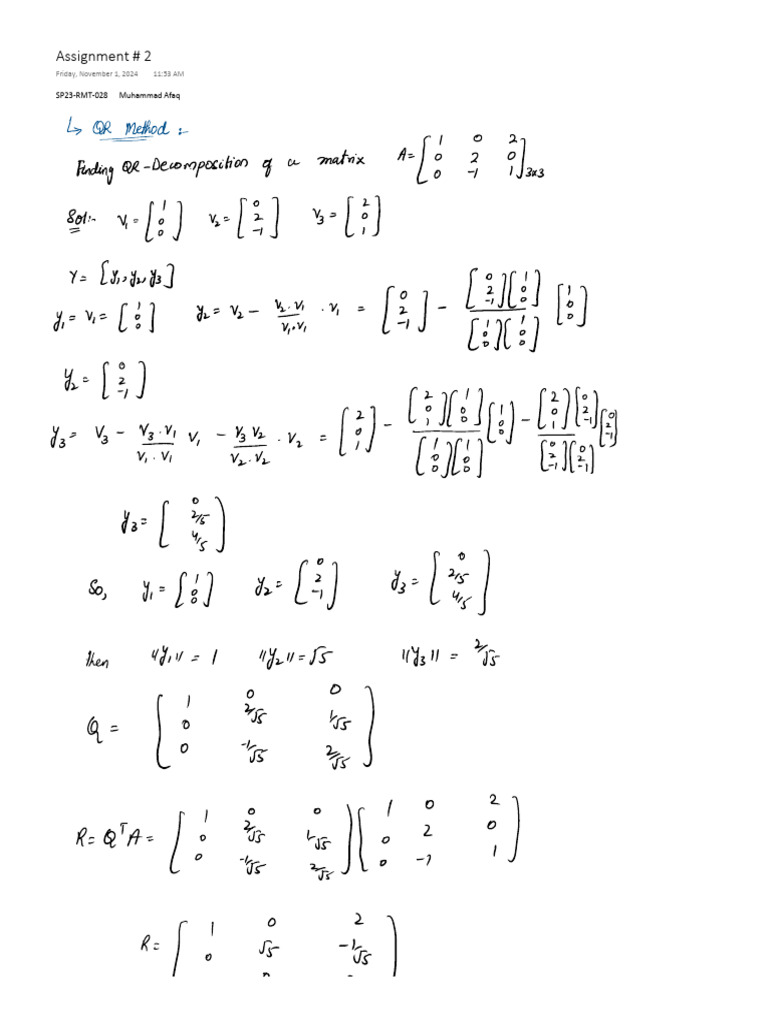 Assignment # 2
Friday, November 1, 2024 11:53 AM
SP23-RMT-028 Muhammad Afaq
↳ QR Method :-
Finding QR-Decomposition of a matrix A = [1 0 2; 0 2 0; 0 -1 1]3x3
Sol:- V₁ = [1; 0; 0] V₂ = [0; 2; -1] V₃ = [2; 0; 1]
Y = [y₁, y₂, y₃]
y₁ = V₁ = [1; 0; 0] y₂ = V₂ - (V₂ . V₁)/(V₁ . V₁) . V₁ = [0; 2; -1] - ([0; 2; -1][1; 0; 0])/([1; 0; 0][1; 0; 0]) [1; 0; 0]
y₂ = [0; 2; -1]
y₃ = V₃ - (V₃ . V₁)/(V₁ . V₁) V₁ - (V₃ V₂)/(V₂ . V₂) . V₂ = [2; 0; 1] - ([2; 0; 1][1; 0; 0])/([1; 0; 0][1; 0; 0]) [1; 0; 0] - ([2; 0; 1][0; 2; -1])/([0; 2; -1][0; 2; -1]) [0; 2; -1]
y₃ = [0; 2/5; 4/5]
So, y₁ = [1; 0; 0] y₂ = [0; 2; -1] y₃ = [0; 2/5; 4/5]
then ||y₁|| = 1 ||y₂|| = √5 ||y₃|| = 2/√5
Q = [1 0 0; 0 2/√5 1/√5; 0 -1/√5 2/√5]
R = QᵀA = [1 0 0; 0 2/√5 1/√5; 0 -1/√5 2/√5] [1 0 2; 0 2 0; 0 -1 1]
R = [1 0 2; 0 √5 -1/√5